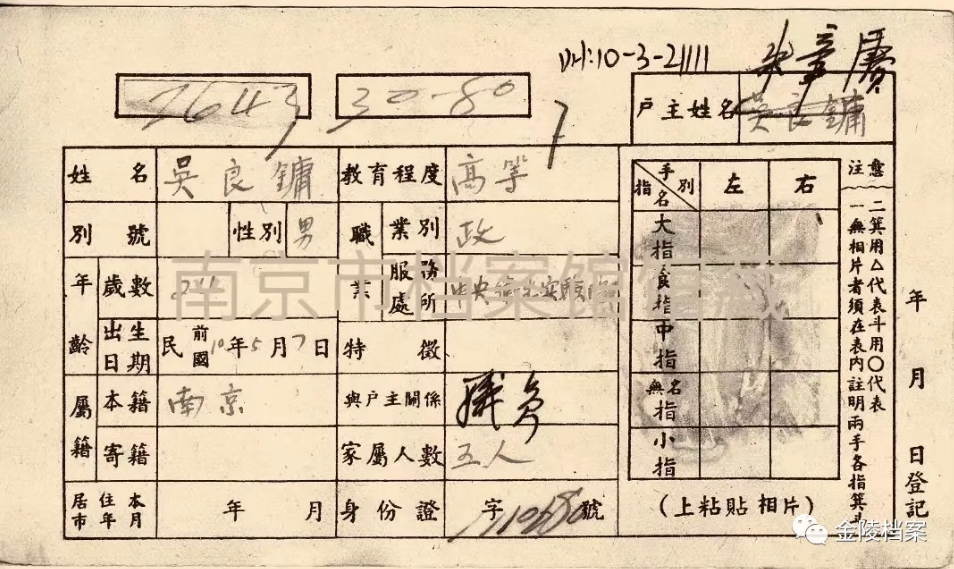 10-3-21111
7643 30-80
戶主姓名 吳良鏞
姓名 吳良鏞 教育程度 高等
別號 性別 男 職業 業別 政
服務處所
年齡 歲數
出生日期 民前國10年5月7日 特徵
屬籍 本籍 南京 與戶主關係 職員
寄籍 家屬人數 五人
居住本市年月 年 月 身份證 字 號
手別 指名 左 右
大指
食指
中指
無名指
小指
(上粘貼相片)
注意
一無相片者須在表內註明兩手各指箕斗
二箕用△代表斗用○代表
年 月 日登記
南京市档案馆馆藏
金陵档案